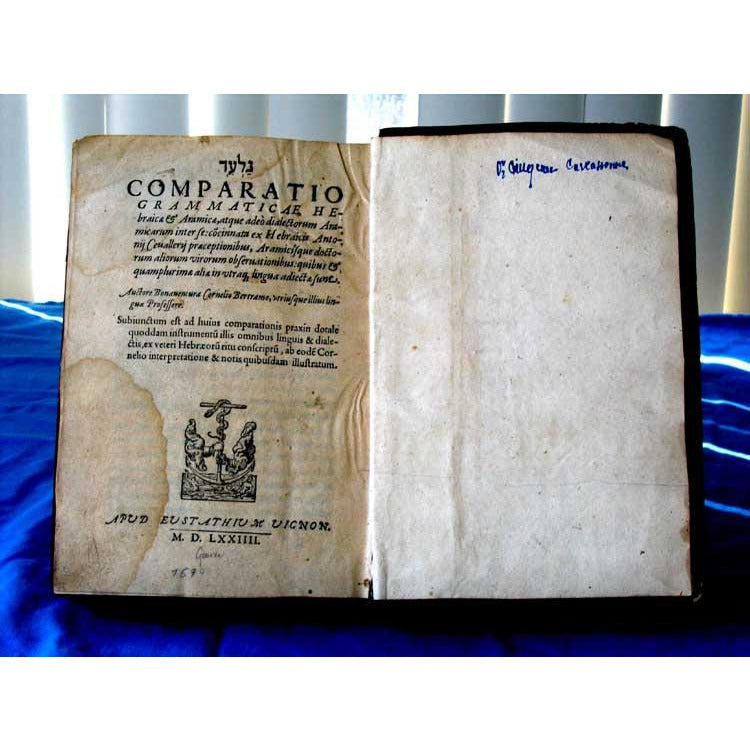 גַלְעֵד
COMPARATIO
GRAMMATICAE HE-
braicæ & Aramicæ, atque adeò dialectorum Ara-
micarum inter se: cõcinnata ex Hebraicis Anto-
nij Ceuallerij præceptionibus, Aramicisque docto-
rum aliorum virorum obseruationibus: quibus &
quamplurima alia in vtraq; lingua adiecta sunt.
Auctore Bonauentura Cornelio Bertramo, vtriusque illius lin-
guæ Professore.
Subiunctum est ad huius comparationis praxin dotale
quoddam instrumentũ illis omnibus linguis & diale-
ctis, ex veteri Hebræorũ ritu conscriptũ, ab eodẽ Cor-
nelio interpretatione & notis quibusdam illustratum.
APVD EVSTATHIVM VIGNON.
M. D. LXXIIII.